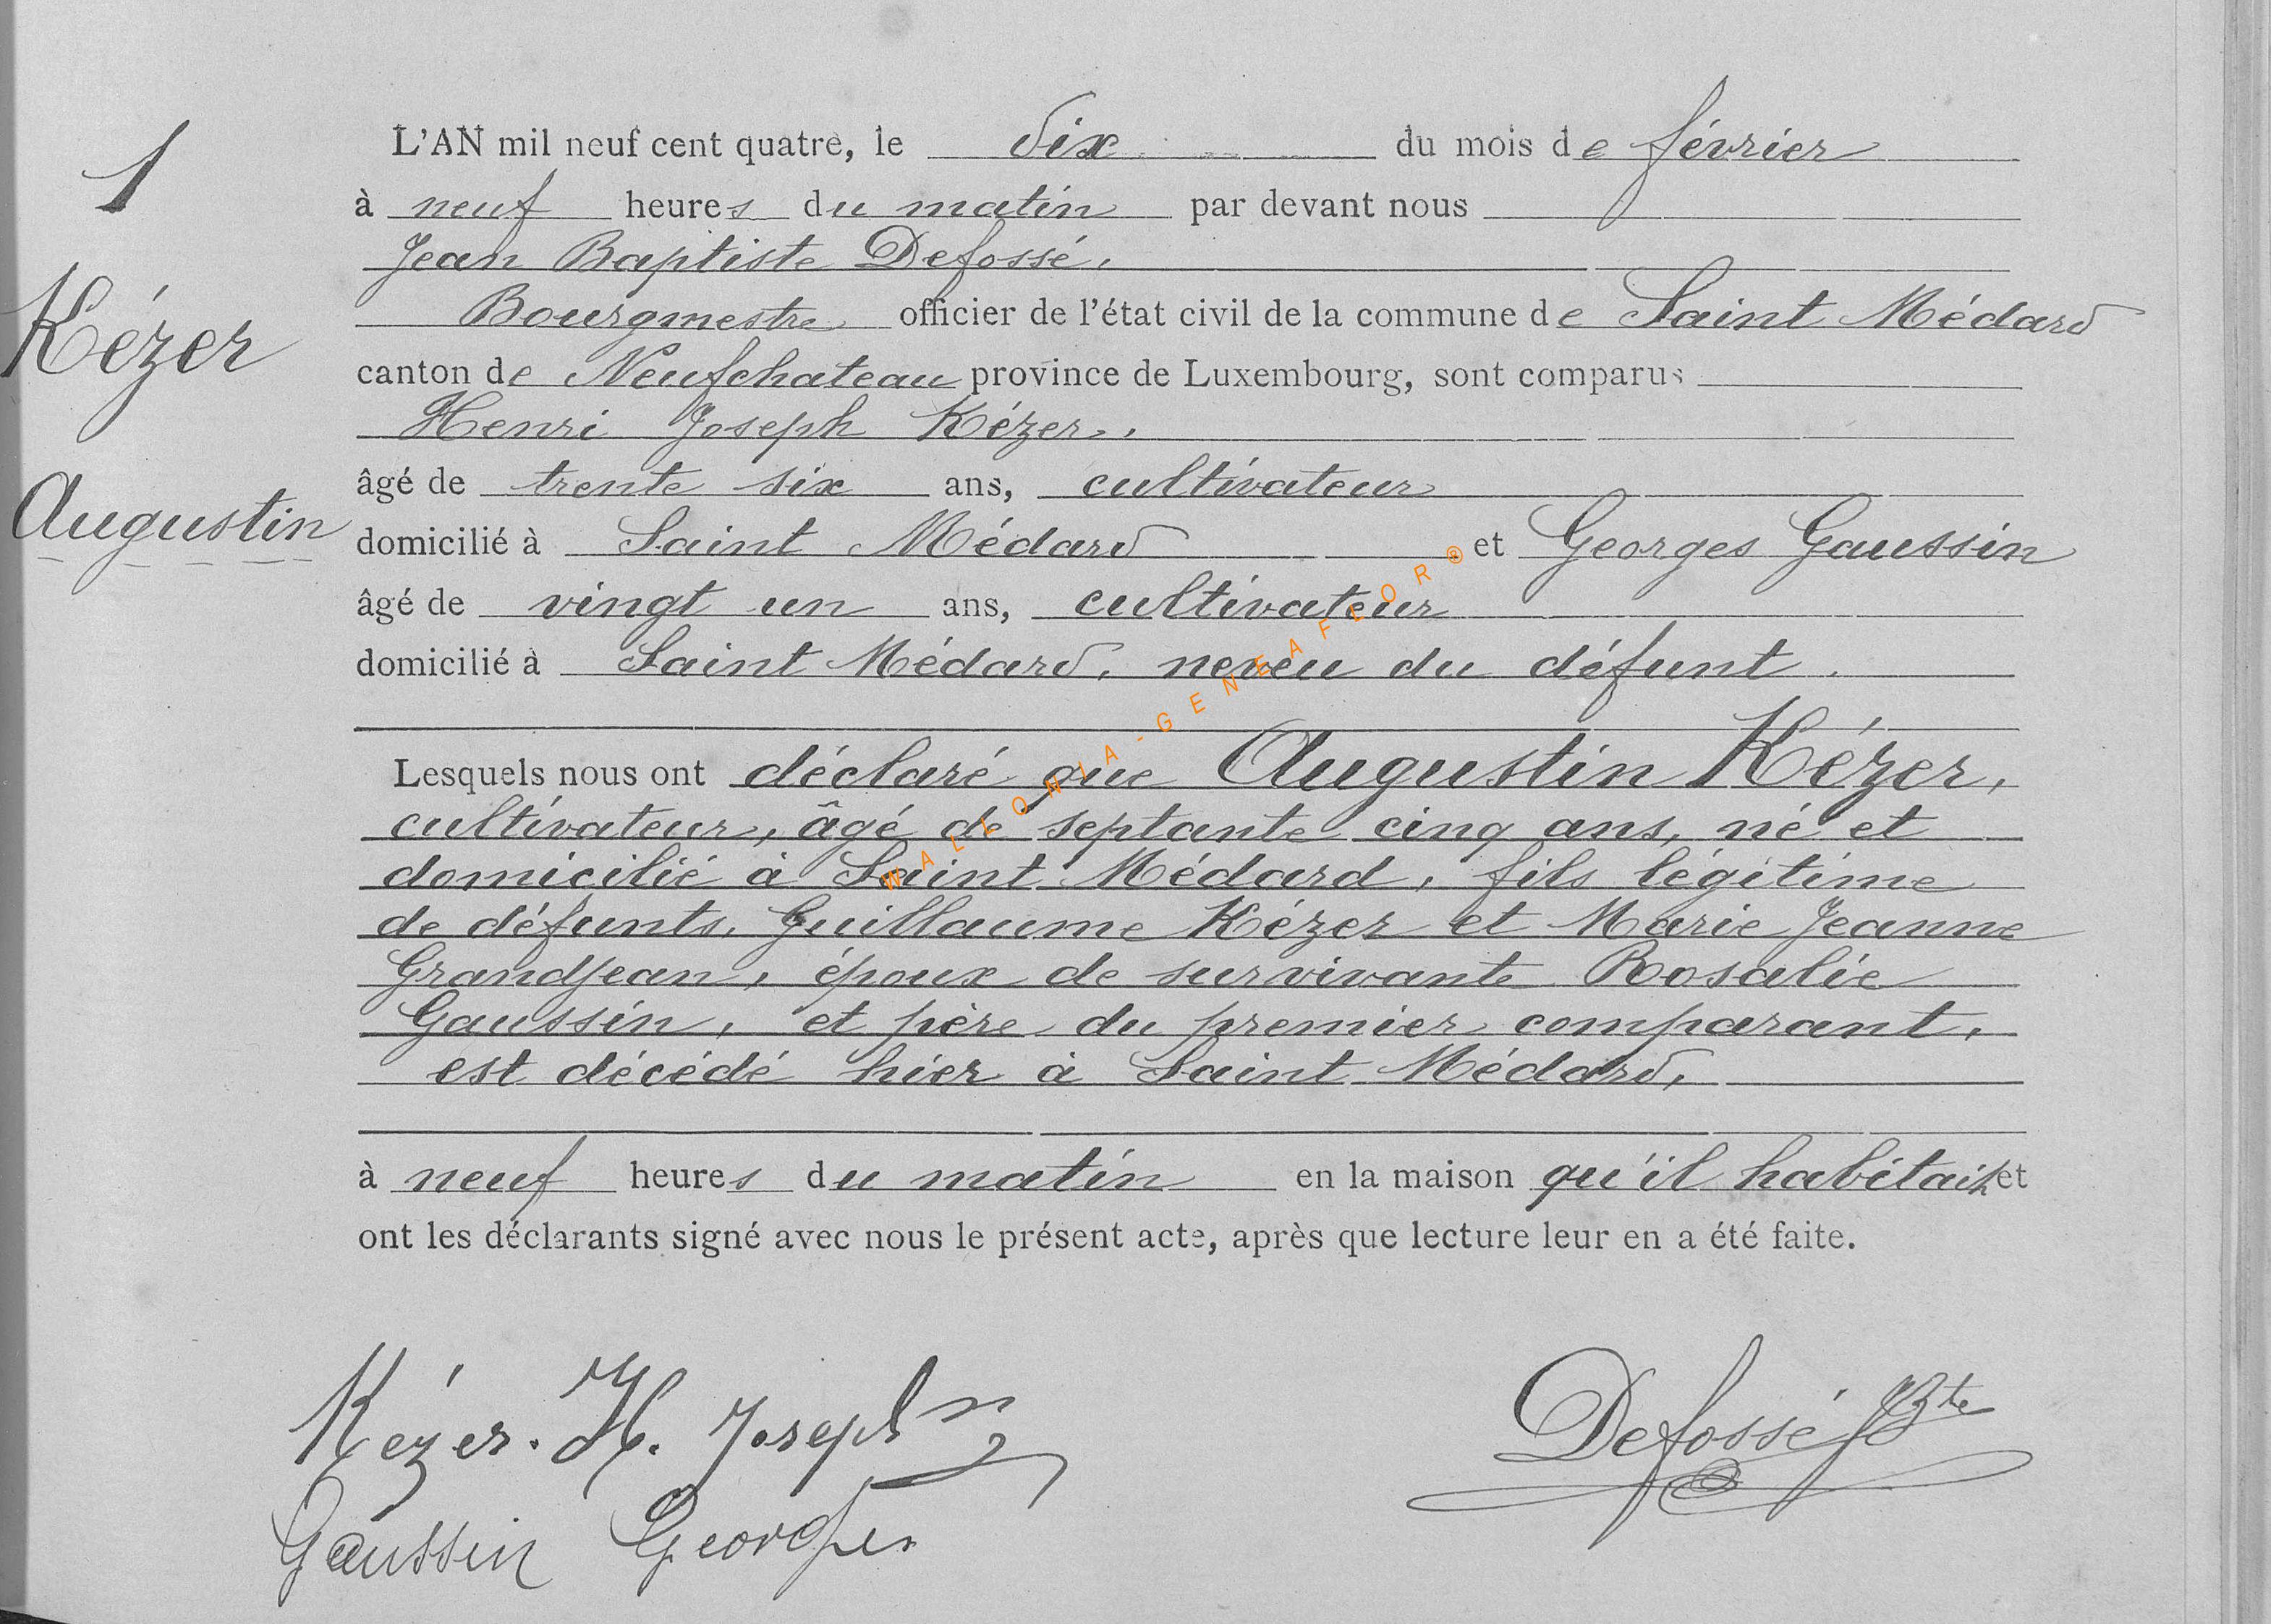 1
Kézer
Augustin
L'AN mil neuf cent quatre, le dix du mois de février
à neuf heures du matin par devant nous
Jean Baptiste Defossé,
Bourgmestre officier de l'état civil de la commune de Saint Médard
canton de Neufchateau province de Luxembourg, sont comparus
Henri Joseph Kézer,
âgé de trente six ans, cultivateur
domicilié à Saint Médard et Georges Gaussin
âgé de vingt un ans, cultivateur
domicilié à Saint Médard, neveu du défunt.
Lesquels nous ont déclaré que Augustin Kézer,
cultivateur, âgé de septante cinq ans, né et
domicilié à Saint Médard, fils légitime
de défunts, Guillaume Kézer et Marie Jeanne
Grandjean, époux de survivante Rosalie
Gaussin, et père du premier comparant,
est décédé hier à Saint Médard,
à neuf heures du matin en la maison qu'il habitait et
ont les déclarants signé avec nous le présent acte, après que lecture leur en a été faite.
Kézer. H. Joseph
Defossé JBte
Gaussin Georges
WALLONIA-GENEAFLOR®